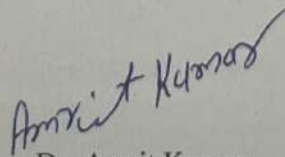 Amrit Kumar